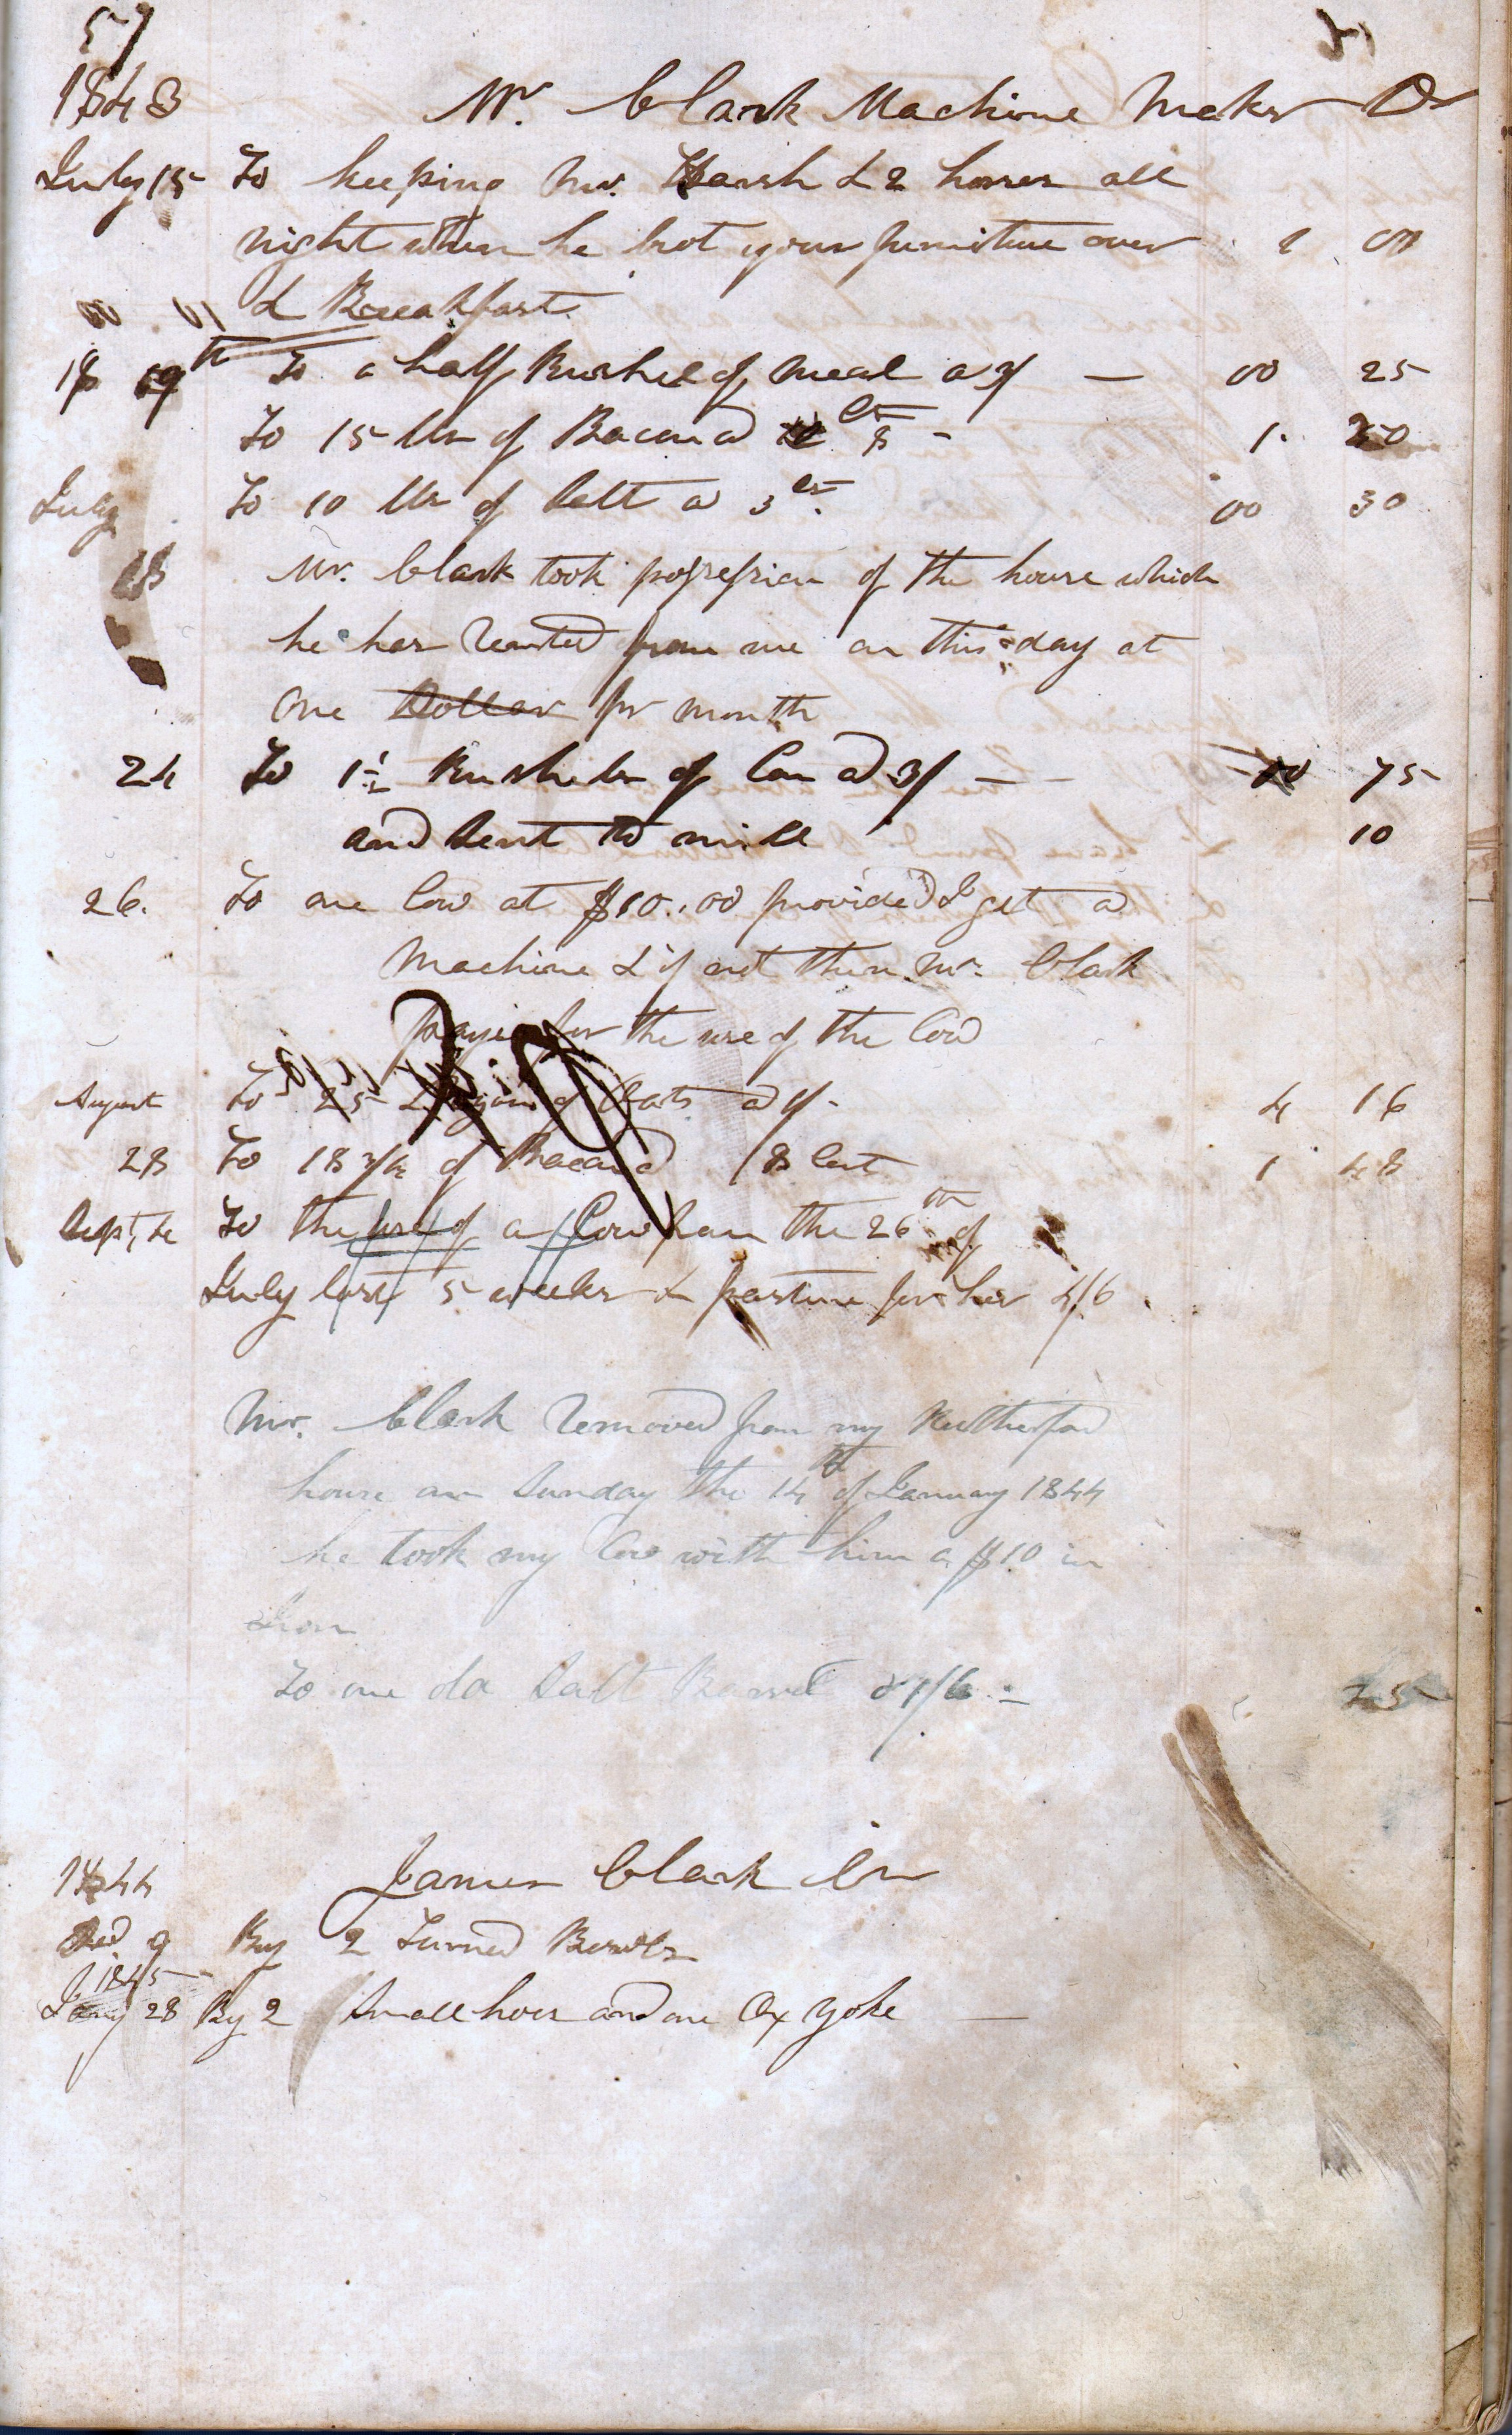 57
1843 Mr. Clark Machine Maker Dr
July 15 To keeping Mr. Harsh & 2 horses all
night when he brot your furniture over 1 00
& Breakfast
18 19th To a half Bushel of meal a 3/ — 00 25
To 15 lbs of Bacon a cts 8 - 1. 20
July To 10 lbs of Salt a 3 cts. 00 30
18 Mr. Clark took possession of the house which
he has Rented from me on this day at
One Dollar pr month
24 To 1½ Bushels of Corn a 3/ — 00 75
and Sent to mill 10
26. To one Cow at $10..00 provided I get a
Machine & if not then Mr. Clark
pays for the use of the Cow
August To 25 of Oats a 1/- 4 16
28 To 18 3/4 of Bacon a 8 Cent 1 48
Sept, 4 To the use of a Cow from the 26th of
July last 5 weeks & pasture for her 4/6.
Mr. Clark removed from my Rutherford
house on Sunday the 14th of January 1844
he took my Cow with him a $10 in
Iron
To one old Salt Barrel a 1/6 - 25
1844 James Clark Cr
Dec 9 By 2 Turned Bowls
1845
Jany 28 By 2 Small hoes and one Ox Yoke —